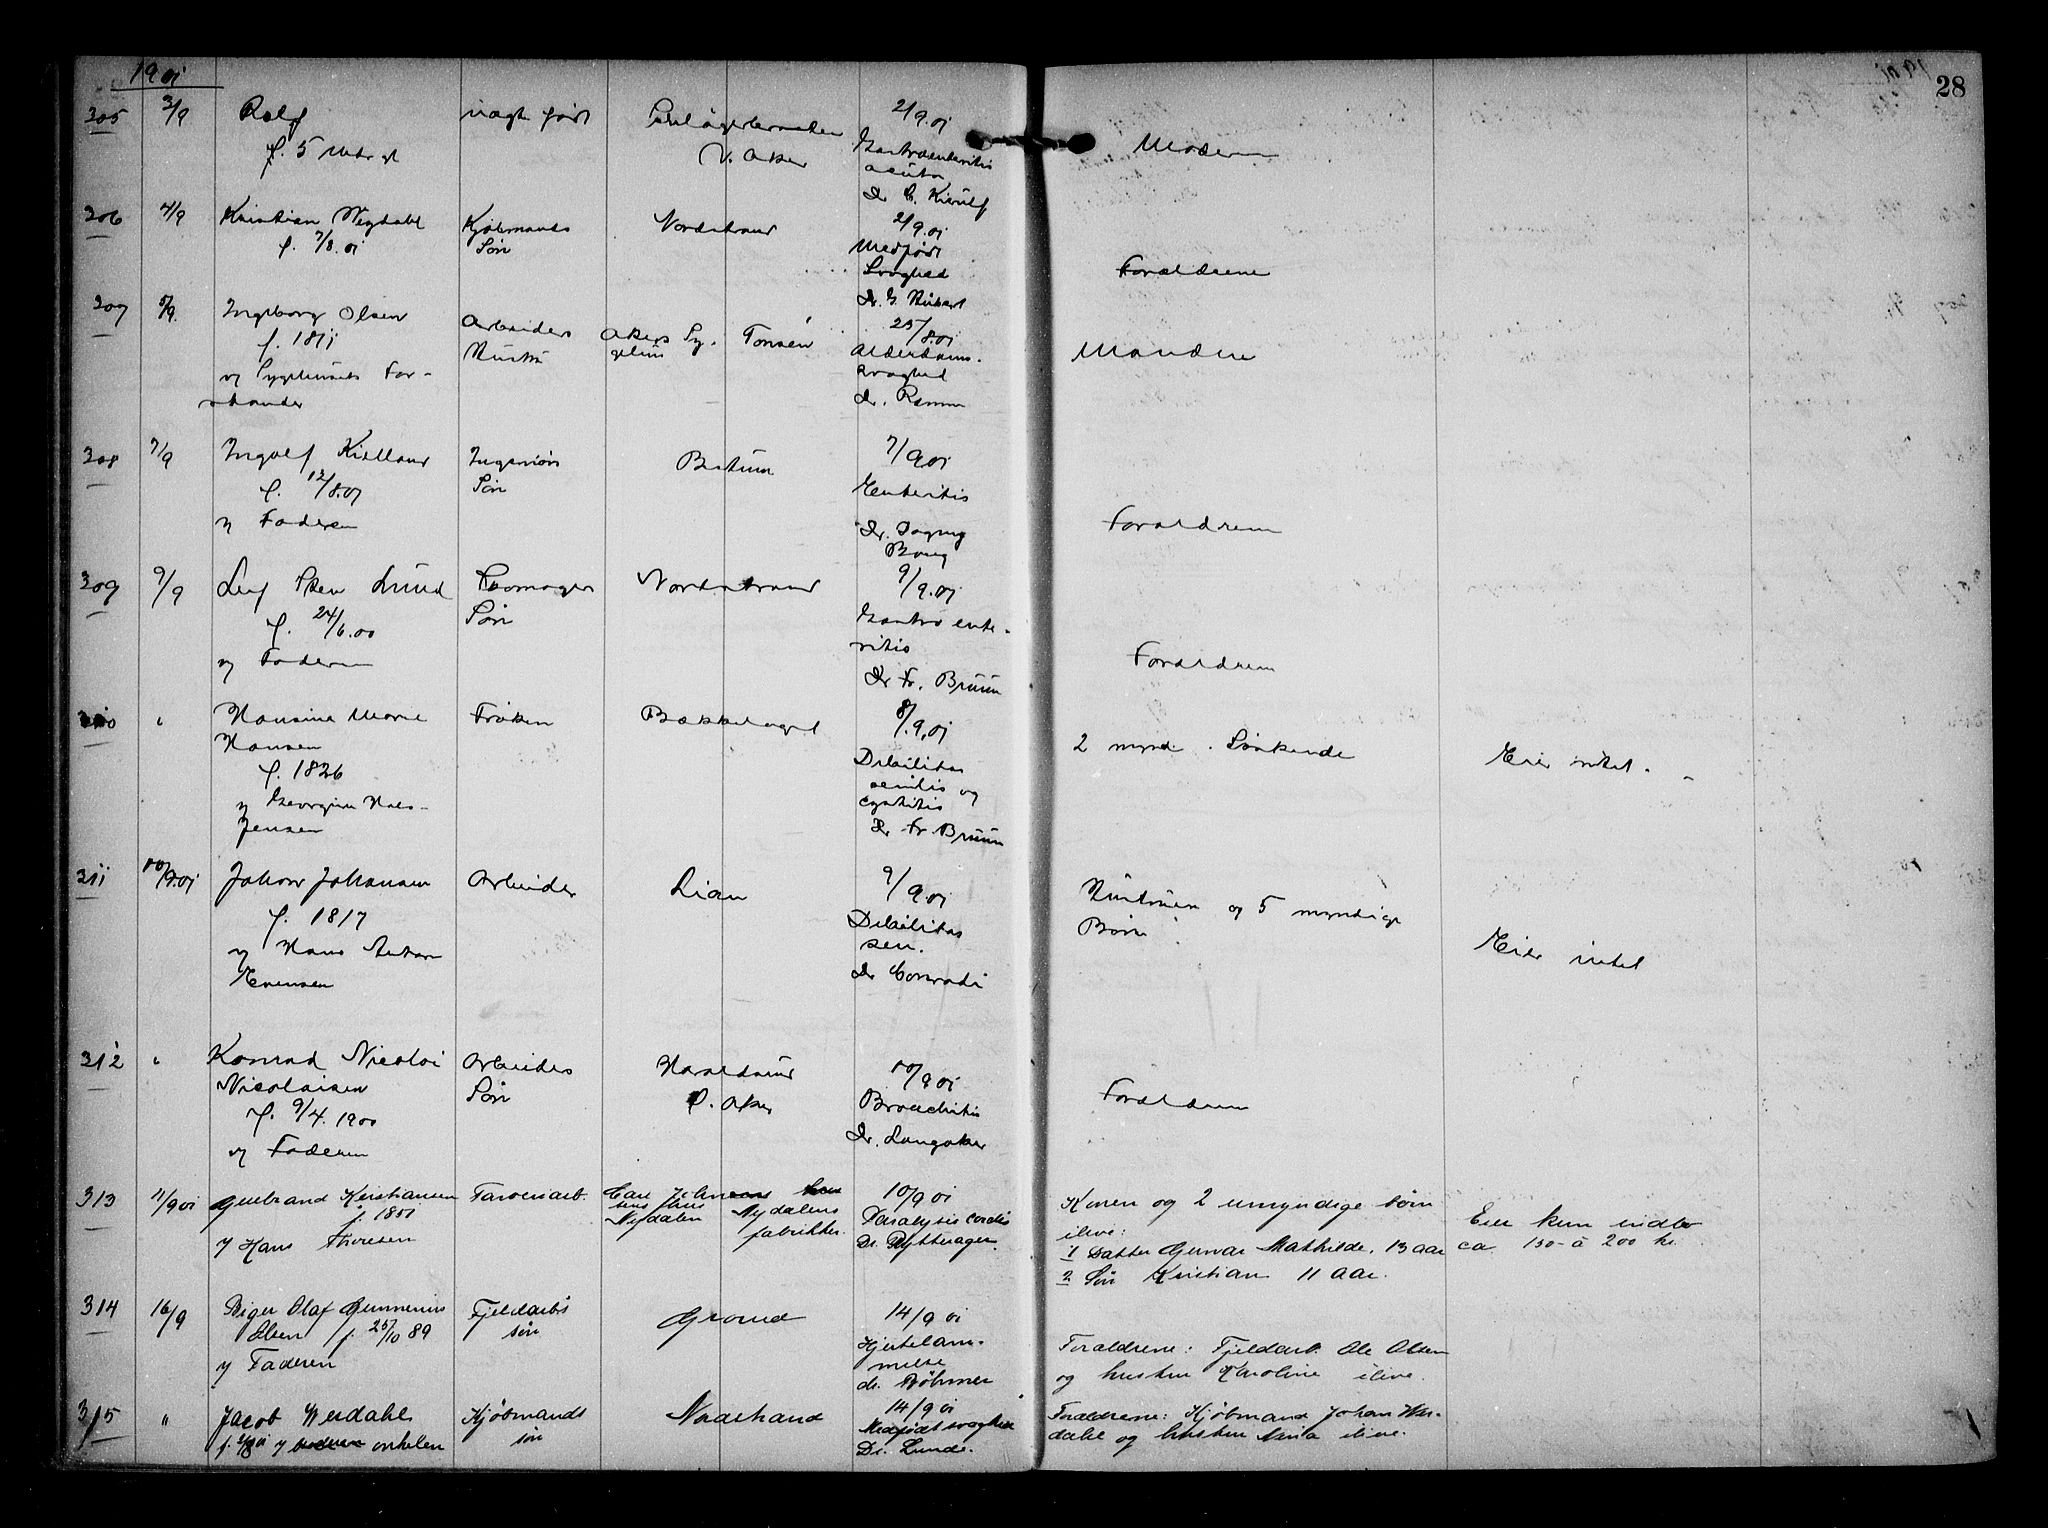 1901
28
305
3/9
Rolf
f. 5 Mdr gl
uægte født
V. Aker
2/9.01
Gastroenteritis
acuta
Dr C. Kierulf
Moderen
306
4/9
Kristian Werdahl
f. 7/8.01
Kjøbmands
Søn
Nordstrand
2/9.01
Medfødt
Svaghed
Forældrene
307
5/9.
Ingeborg Olsen
f. 1811
v/ Sygehusets For-
stander
Arbeiders
Hustru
Akers Sy-
gehus
Tonsen
25/8.01
Alderdoms-
svaghed
Dr. Ramm
Manden
308
7/9
Ingolf Kielland
f. 12/8.01
v/ Faderen
Ingeniørs
Søn
Bestum
7/9 01
Enteritis
Dr. Dagny
Bang
Forældrene
309
9/9
Leif Steen Lund
f. 24/6.00
v/ Faderen
Søn
Nordstrand
9/9.01
Gastro ente-
ritis
Dr Fr. Bruun
Forældrene
310
"
Hansine Marie
Hansen
f. 1826
v/ Georgine Hals-
Jensen
Frøken
Bækkelaget
8/9.01
Debilitas
senilis og
cystitis
Dr Fr. Bruun
2 mynd. Søskende
Eier intet. -
311
10/9.01
Johan Johansen
f. 1817
v/ Hans Anton
Evensen
Arbeider
Lian
9/9.01
Debilitas
sen.
Dr Conradi
Hustruen og 5 myndige
Børn.
Eier intet
312
"
Konrad Nicolai
Nicolaisen
f. 9/4.1900
v/ Faderen
Arbeiders
Søn
Haraldsrud
Ø. Aker
10/9 01
Bronchitis
Dr. Langaker
Forældrene
313
11/9 01
Gulbrand Kristiansen
f. 1851
v/ Hans Thoresen
Farveriarb.
Carl
hus
Nydalen
Nydalens
fabrikker.
10/9 01
Paralysis cordis
Dr. Rytterager.
Konen og 2 umyndige børn
ilive:
1 Datter Gunvar Mathilde, 13 aar
2 Søn Kristian 11 aar.
Eier kun indbo
ca 150 - à 200 kr.
314
16/9
Birger Olaf Gunnerius
Olsen f. 25/10 89
v/ Faderen
Fjeldarbs
søn
Grorud
14/9 01
Hjertelam-
melse
dr. Bøhmer
Forældrene: Fjeldarb. Ole Olsen
og hustru Karoline ilive.
315
"
Jacob Werdahl
f. 7/8 01 v/ onkelen
Kjøbmands
søn
Nordstrand
14/9 01
Medfødt svaghed
Dr. Lunde.
Forældrene: Kjøbmand Johan Wer-
dahl og hustru ilive.